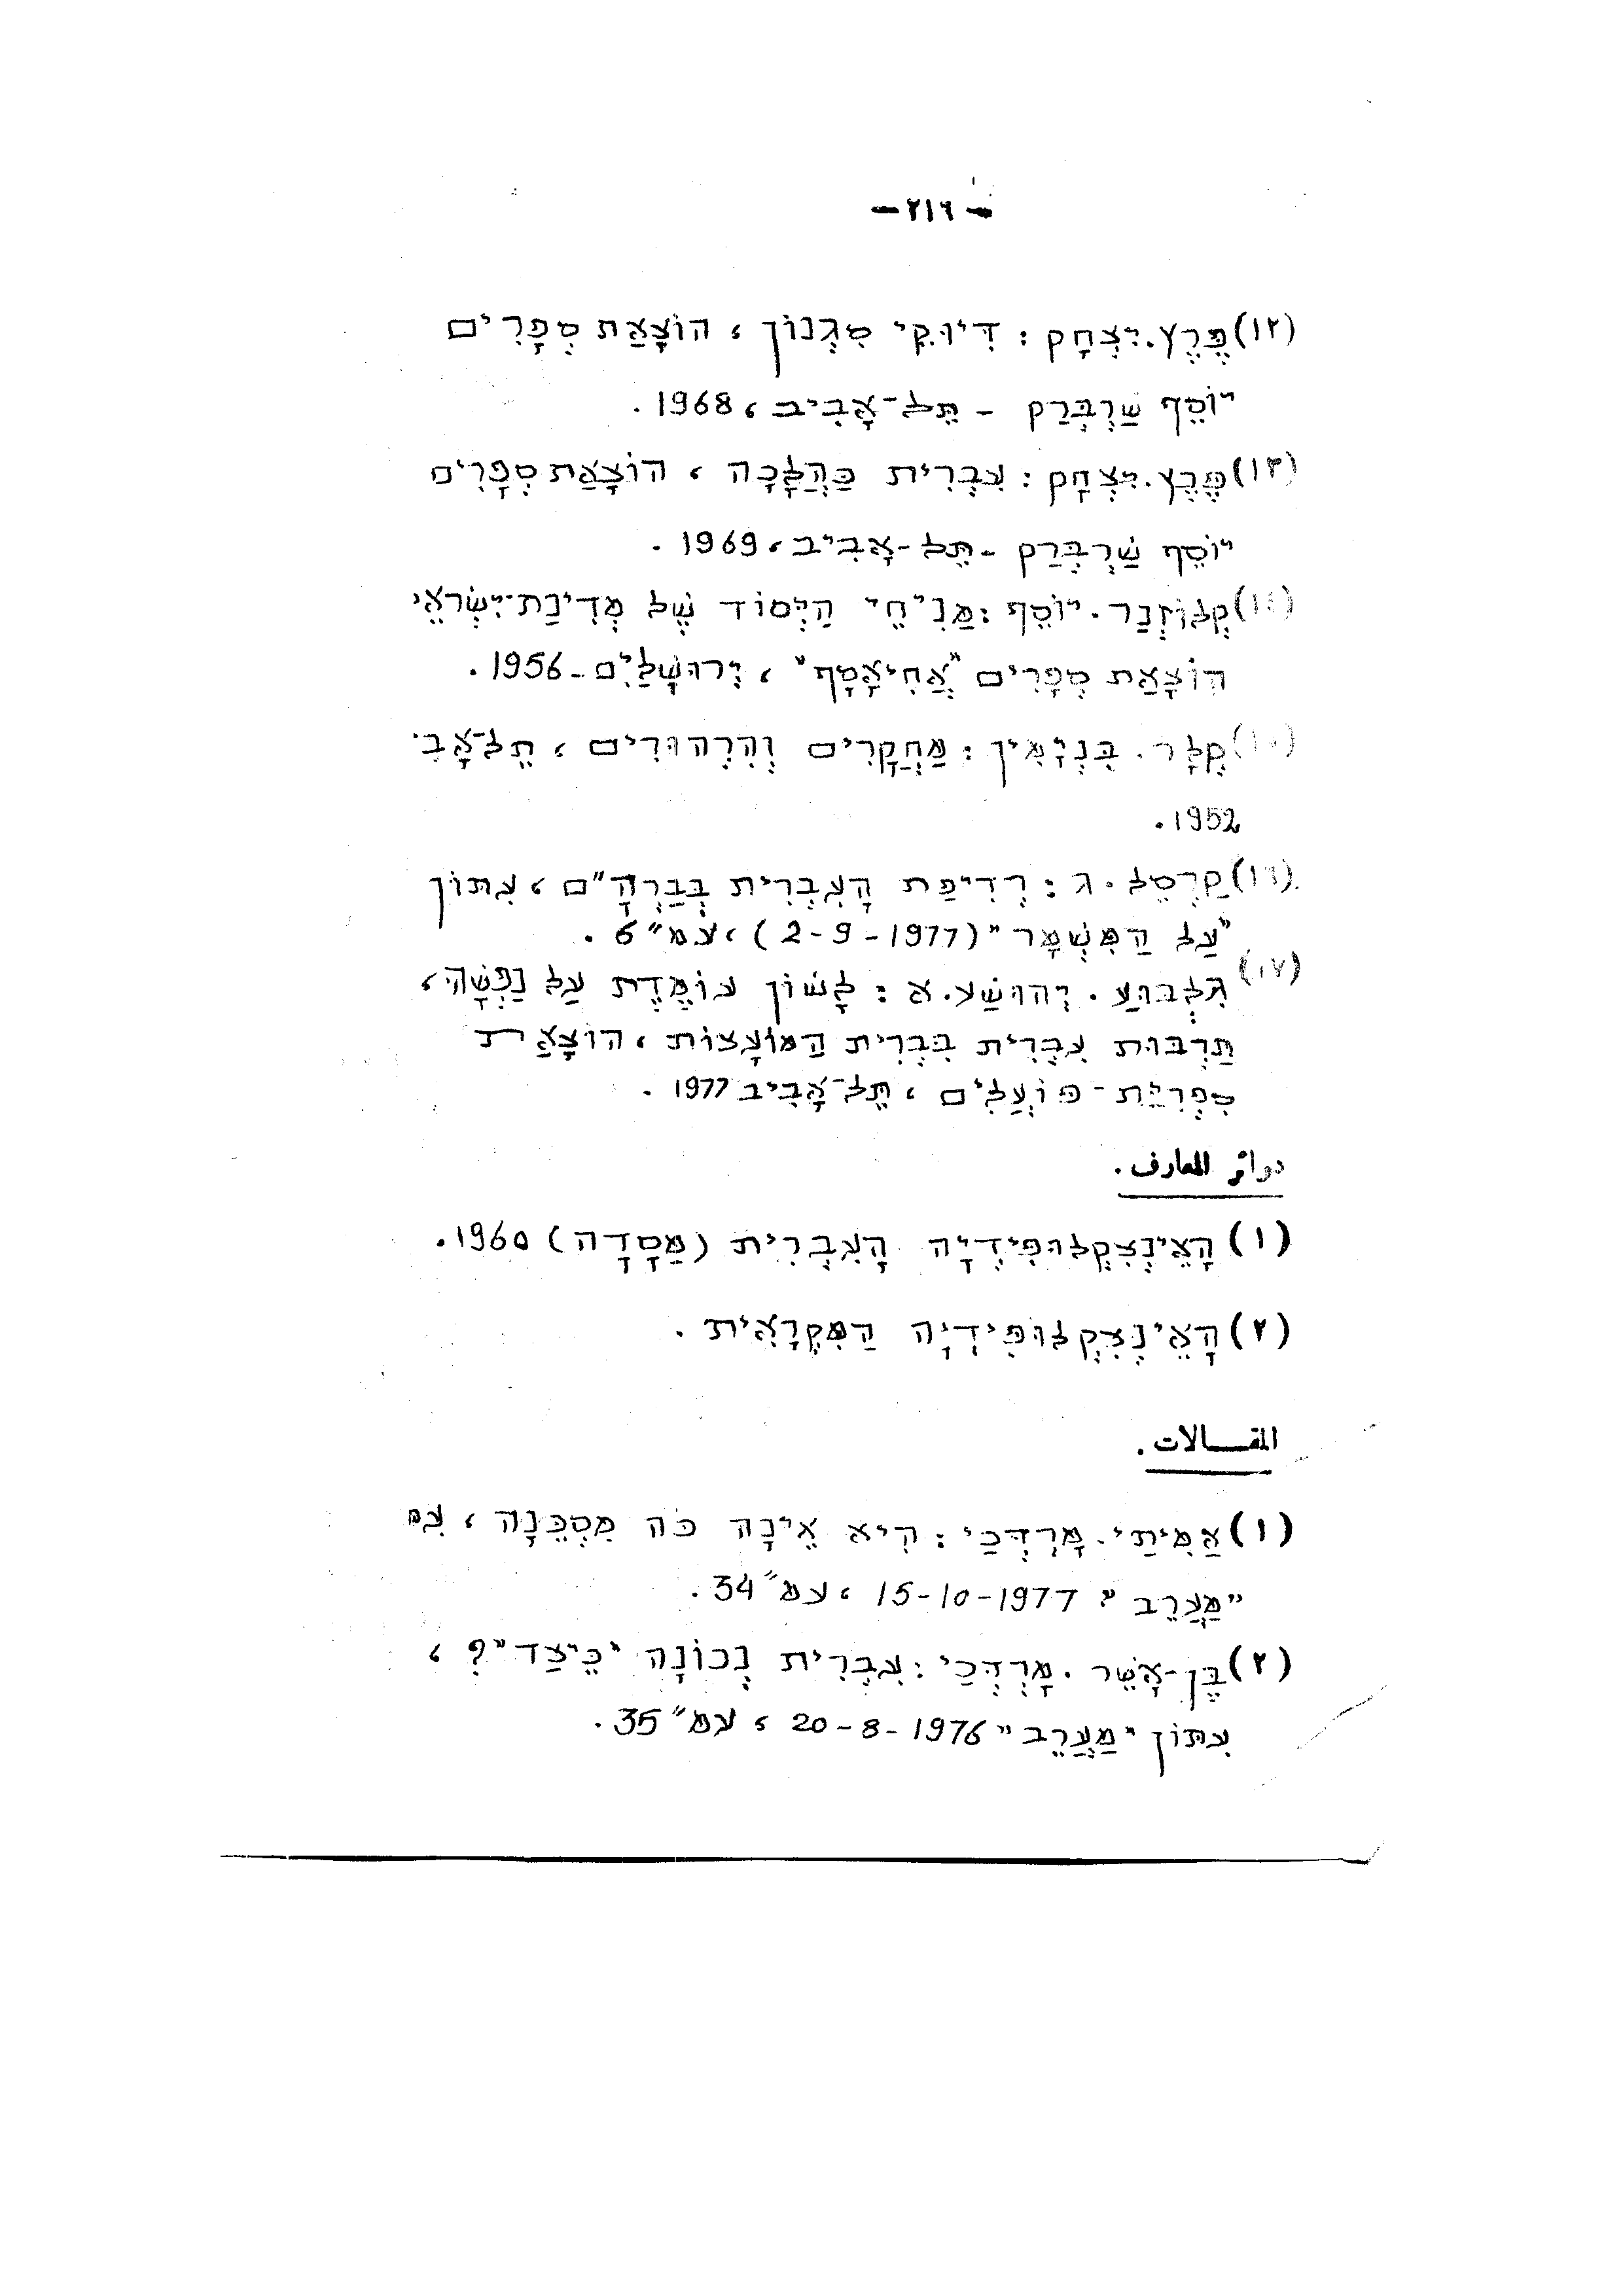 -٢١٦-
(١٢) פֶּרֶץ. יִצְחָק : דִּיוּקֵי סִגְנוֹן ، הוֹצָאַת סְפָרִים
יוֹסֵף שַׁרְבְּרַק - תֵּל-אָבִיב ، 1968 .
(١٣) פֶּרֶץ. יִצְחָק : עִבְרִית כַּהֲלָכָה ، הוֹצָאַת סְפָרִים
יוֹסֵף שַׁרְבְּרַק - תֵּל-אָבִיב ، 1969 .
(١٤) קְלוֹזְנַר. יוֹסֵף : מַנִיחֵי הַיְּסוֹד שֶׁל מְדִינַת-יִשְׂרָאֵ
הוֹצָאַת סְפָרִים "אֲחִיאָסָף" ، יְרוּשָׁלַיִם - 1956 .
(١٥) קְלָר. בִּנְיָמִין : מֶחְקָרִים וְהִרְהוּרִים ، תֵּל-אָבִי
1952 .
(١٦) קַרְסֵל. ג : רְדִיפַת הָעִבְרִית בְּבַרְהָ"ם ، עִתּוֹן
"עַל הַמִּשְׁמָר" (2-9-1977) ، עמ" 6 .
(١٧) גִּלְבּוֹעַ. יְהוֹשֻׁעַ. א : לָשׁוֹן עוֹמֶדֶת עַל נַפְשָׁהּ ،
תַּרְבּוּת עִבְרִית בִּבְרִית הַמּוֹעָצוֹת ، הוֹצָאַת
סִפְרִיַּת - פּוֹעֲלִים ، תֵּל-אָבִיב 1977 .
دوائر المعارف .
(١) הָאֵינְצִקְלוּפִּידְיָה הָעִבְרִית (מַסָּדָה) 1960 .
(٢) הָאֵינְצִקְלוּפִּידְיָה הַמִּקְרָאִית .
المقـــالات .
(١) אַמִּיתַי. מָרְדְּכַי : הִיא אֵינָהּ כֹּה מִסְכֵּנָה ، עמ
"מַעֲרִב" 15-10-1977 ، עמ" 34 .
(٢) בֶּן-אָשֵׁר. מָרְדְּכַי : עִבְרִית נְכוֹנָה "כֵּיצַד" ؟ ،
עִתּוֹן "מַעֲרֵב" 20-8-1976 ، עמ" 35 .